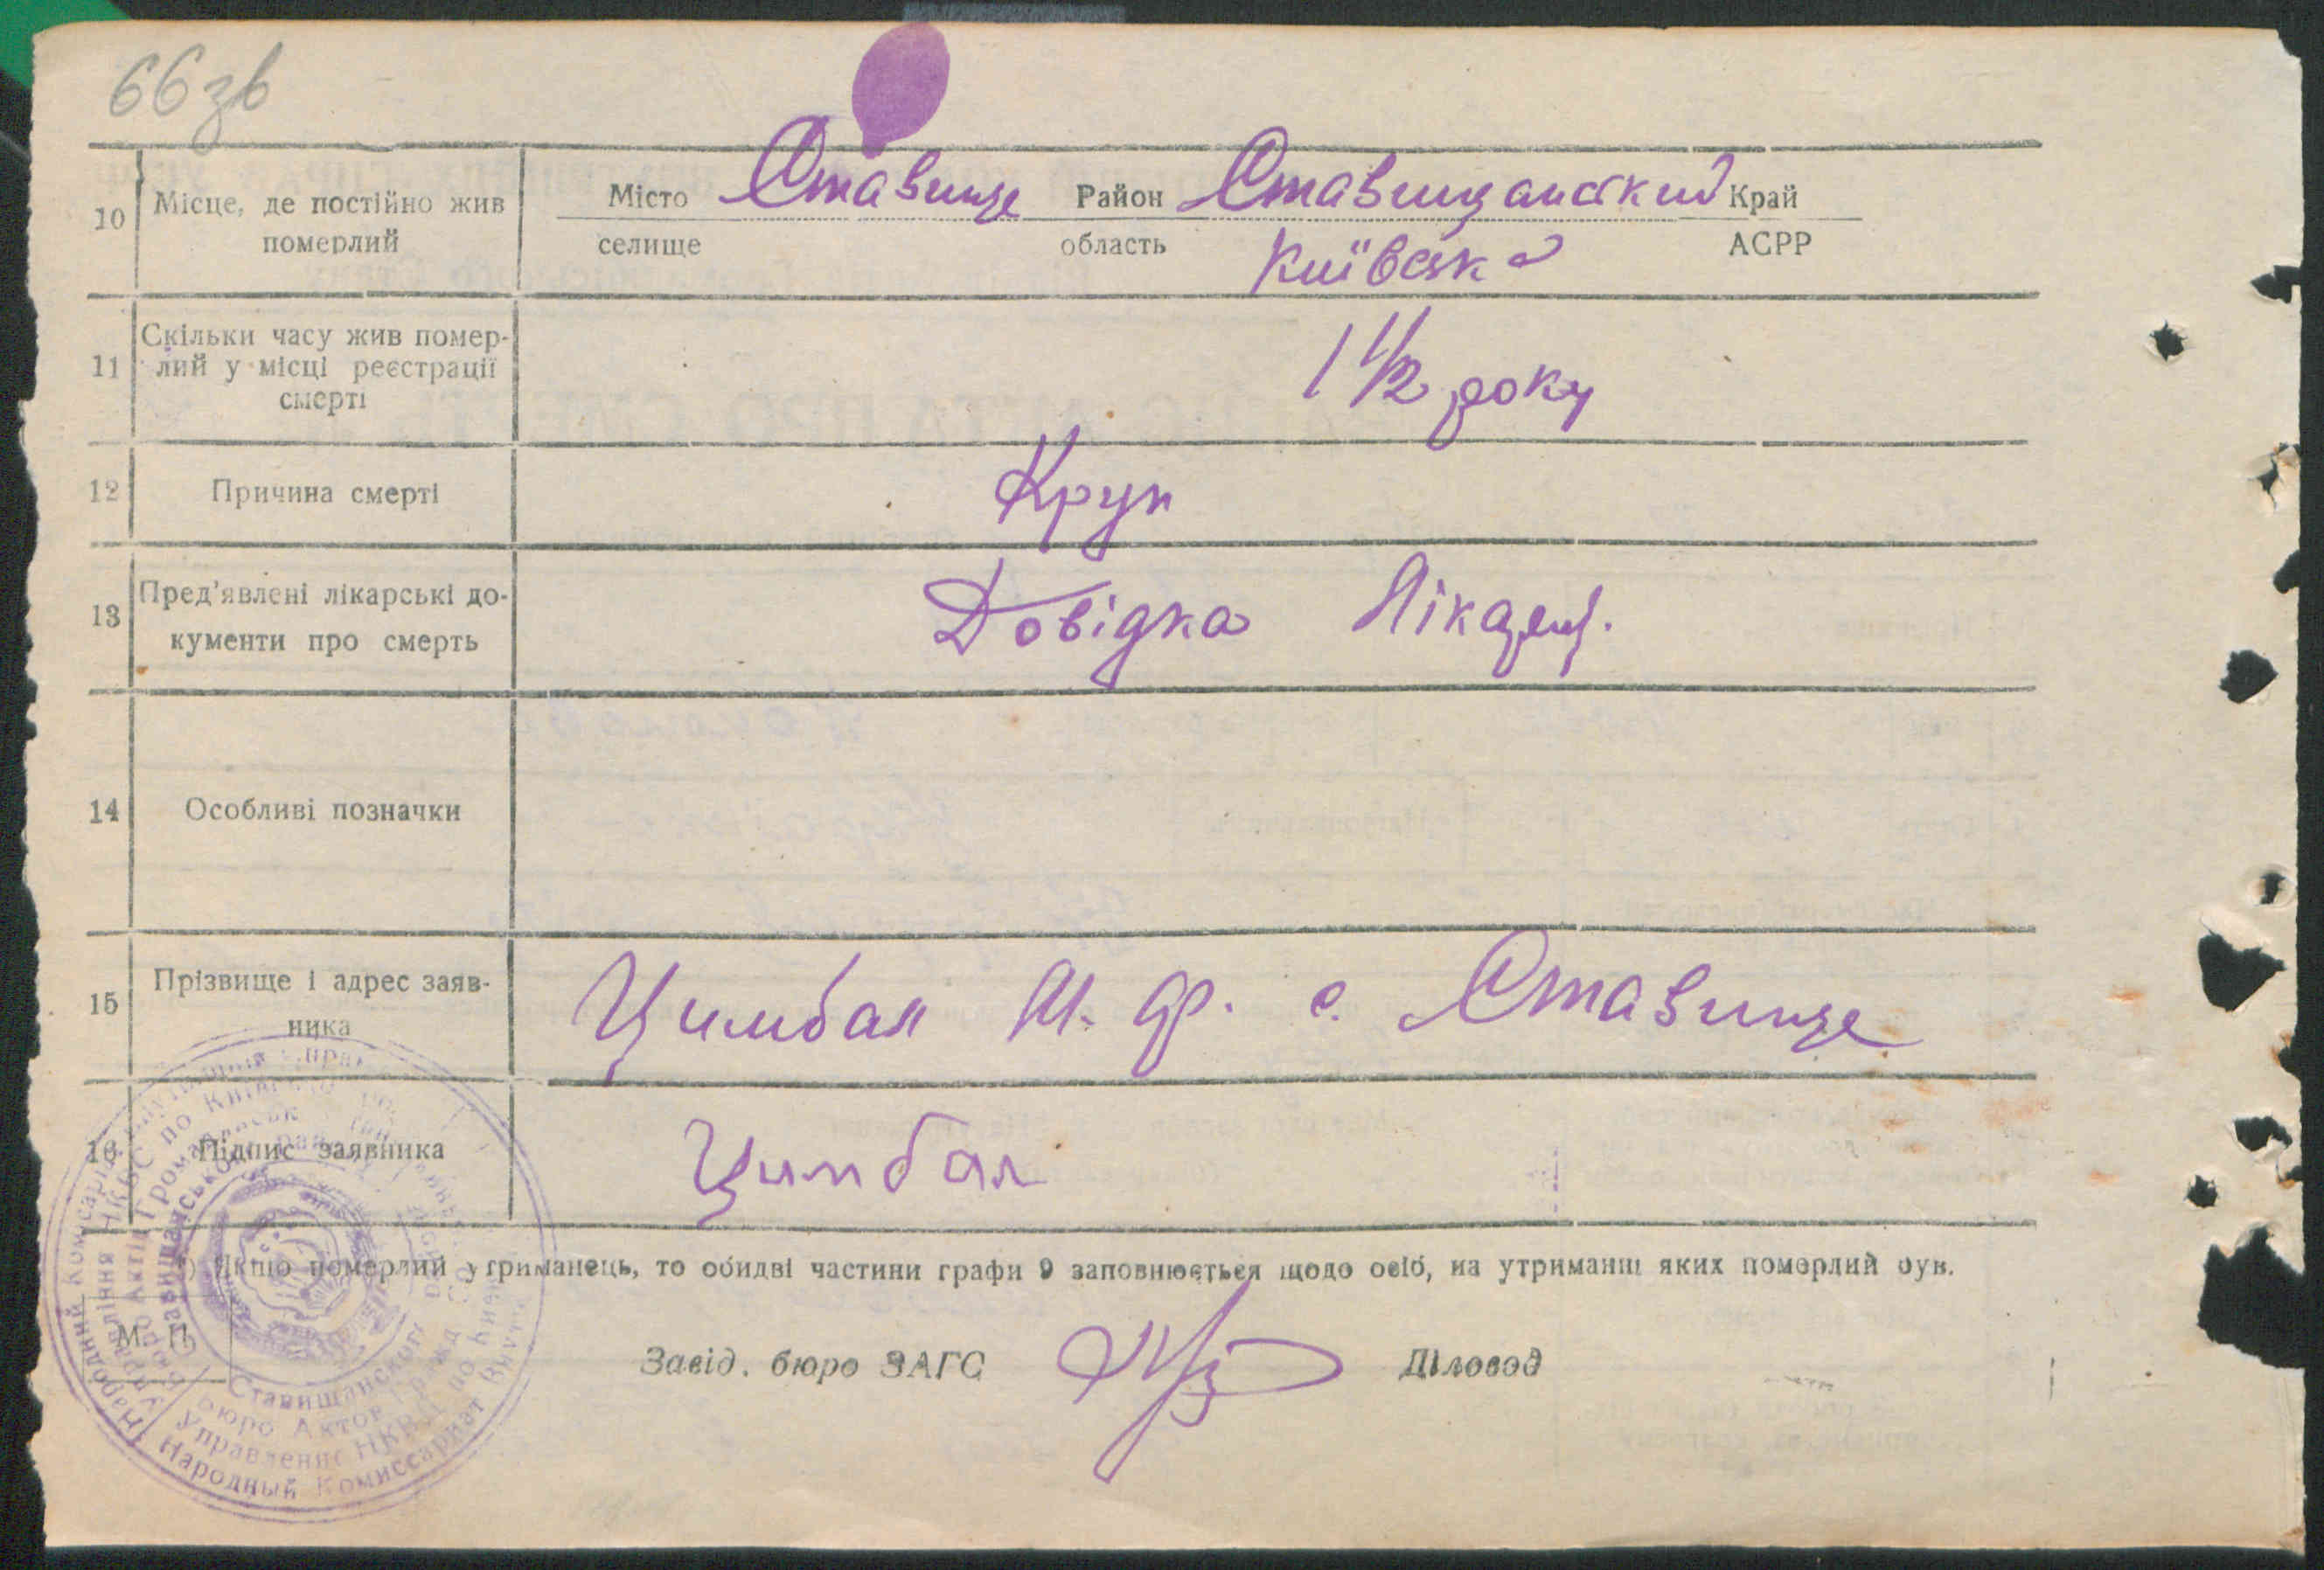 66зв
10 Місце, де постійно жив померлий
Місто Ставище Район Ставищанський Край
селище область Київська АСРР
11 Скільки часу жив помер-
лий у місці реєстрації
смерті
1 1/2 року
12 Причина смерті Круп
13 Пред'явлені лікарські до-
кументи про смерть
Довідка Лікар
14 Особливі позначки
15 Прізвище і адрес заяв-
ника
Цимбал М. Ф. с. Ставище
16 Підпис заявника Цимбал
) Якщо померлий утриманець, то обидві частини графи 9 заповнюється щодо осіб, на утриманні яких померлий був.
М П
Завід. бюро ЗАГС Діловод
Народный Комиссариат Внут
Управление НКВД по Киев
бюро Актов Гражд
Ставищанского
Народний Комісаріат
Управління НКВС по Київ
бюро Актів Громадянськ
Ставищанського рай